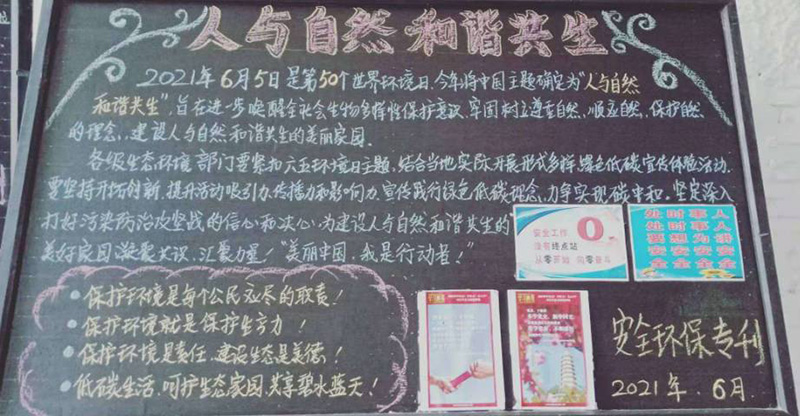 人与自然 和谐共生
2021年6月5日是第50个世界环境日,今年将中国主题确定为"人与自然
和谐共生",旨在进一步唤醒全社会生物多样性保护意识,牢固树立尊重自然、顺应自然、保护自然
的理念,建设人与自然和谐共生的美丽家园.
各级生态环境部门要紧扣六五环境日主题,结合当地实际,开展形式多样,绿色低碳宣传体验活动,
要坚持开拓创新,提升活动吸引力,传播力和影响力,宣传践行绿色低碳理念,力争实现碳中和,坚定深入
打好污染防治攻坚战的信心和决心,为建设人与自然和谐共生的
美好家园凝聚共识,汇聚力量!"美丽中国,我是行动者!"
安全工作 0
没有终点站
从零开始 向零奋斗
处时事人
处时事人
要想为讲
安安安安
全全全全
·保护环境是每个公民应尽的职责!
·保护环境就是保护生产力
·保护环境是责任,建设生态是美德!
·低碳生活,呵护生态家园,共享碧水蓝天!
安全环保专刊
2021年.6月.